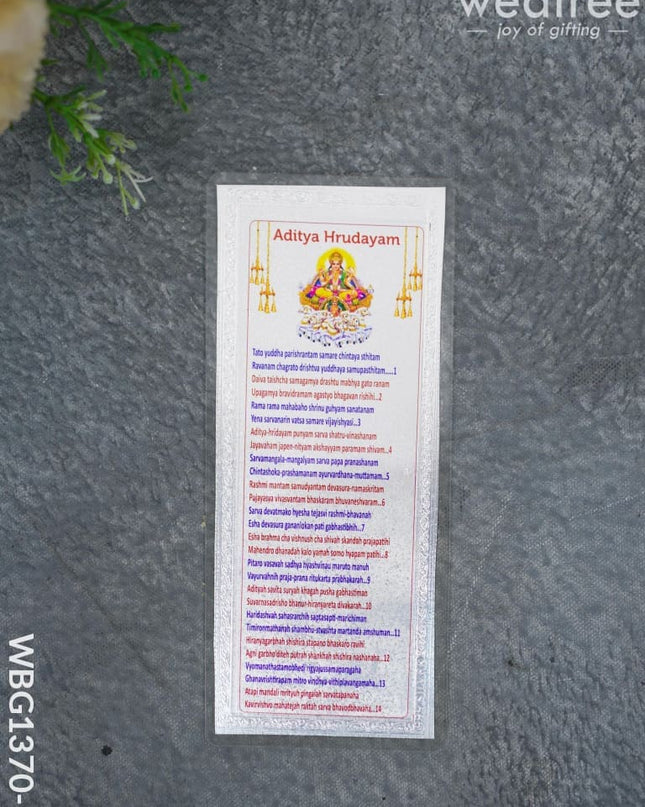 wedtree
— joy of gifting —
Aditya Hrudayam
Tato yuddha parishrantam samare chintaya sthitam
Ravanam chagrato drishtva yuddhaya samupasthitam.....1
Daiva taishcha samagamya drashtu mabhya gato ranam
Upagamya bravidramam agastyo bhagavan rishihi...2
Rama rama mahabaho shrinu guhyam sanatanam
Yena sarvanarin vatsa samare vijayishyasi...3
Aditya-hridayam punyam sarva shatru-vinashanam
Jayavaham japen-nityam akshayyam paramam shivam...4
Sarvamangala-mangalyam sarva papa pranashanam
Chintashoka-prashamanam ayurvardhana-muttamam...5
Rashmi mantam samudyantam devasura-namaskritam
Pujayasva vivasvantam bhaskaram bhuvaneshvaram...6
Sarva devatmako hyesha tejasvi rashmi-bhavanah
Esha devasura gananlokan pati gabhastibhih...7
Esha brahma cha vishnush cha shivah skandah prajapatihi
Mahendro dhanadah kalo yamah somo hyapam patihi...8
Pitaro vasavah sadhya hyashvinau maruto manuh
Vayurvahnih praja-prana ritukarta prabhakarah...9
Adityah savita suryah khagah pusha gabhastiman
Suvarnasadrisho bhanur-hiranyareta divakarah...10
Haridashvah sahasrarchih saptasapti-marichiman
Timironmathanah shambhu-stvashta martanda amshuman...11
Hiranyagarbhah shishira stapano bhaskaro ravihi
Agni garbho'diteh putrah shankhah shishira nashanaha...12
Vyomanathastamobhedi rigyajussamaparagaha
Ghanavrishtirapam mitro vindhya-vithiplavangamaha...13
Atapi mandali mrityuh pingalah sarvatapanaha
Kavirvishvo mahatejah raktah sarva bhavodbhavaha...14
WBG1370-